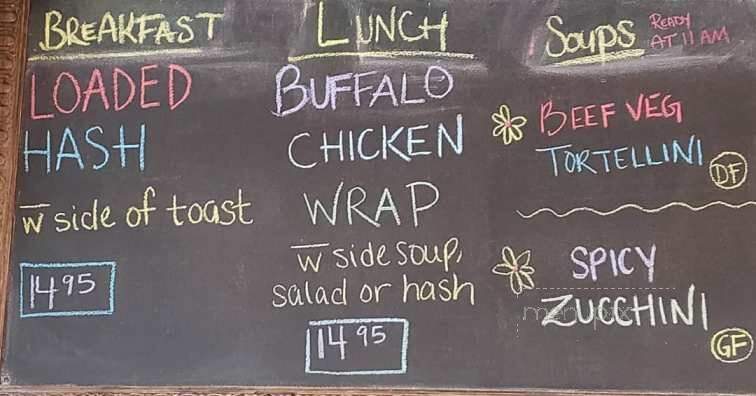 BREAKFAST
LOADED
HASH
w side of toast
14 95
LUNCH
BUFFALO
CHICKEN
WRAP
w side soup,
salad or hash
14 95
Soups READY
AT 11 AM
BEEF VEG
TORTELLINI DF
SPICY
ZUCCHINI
GF
menupix